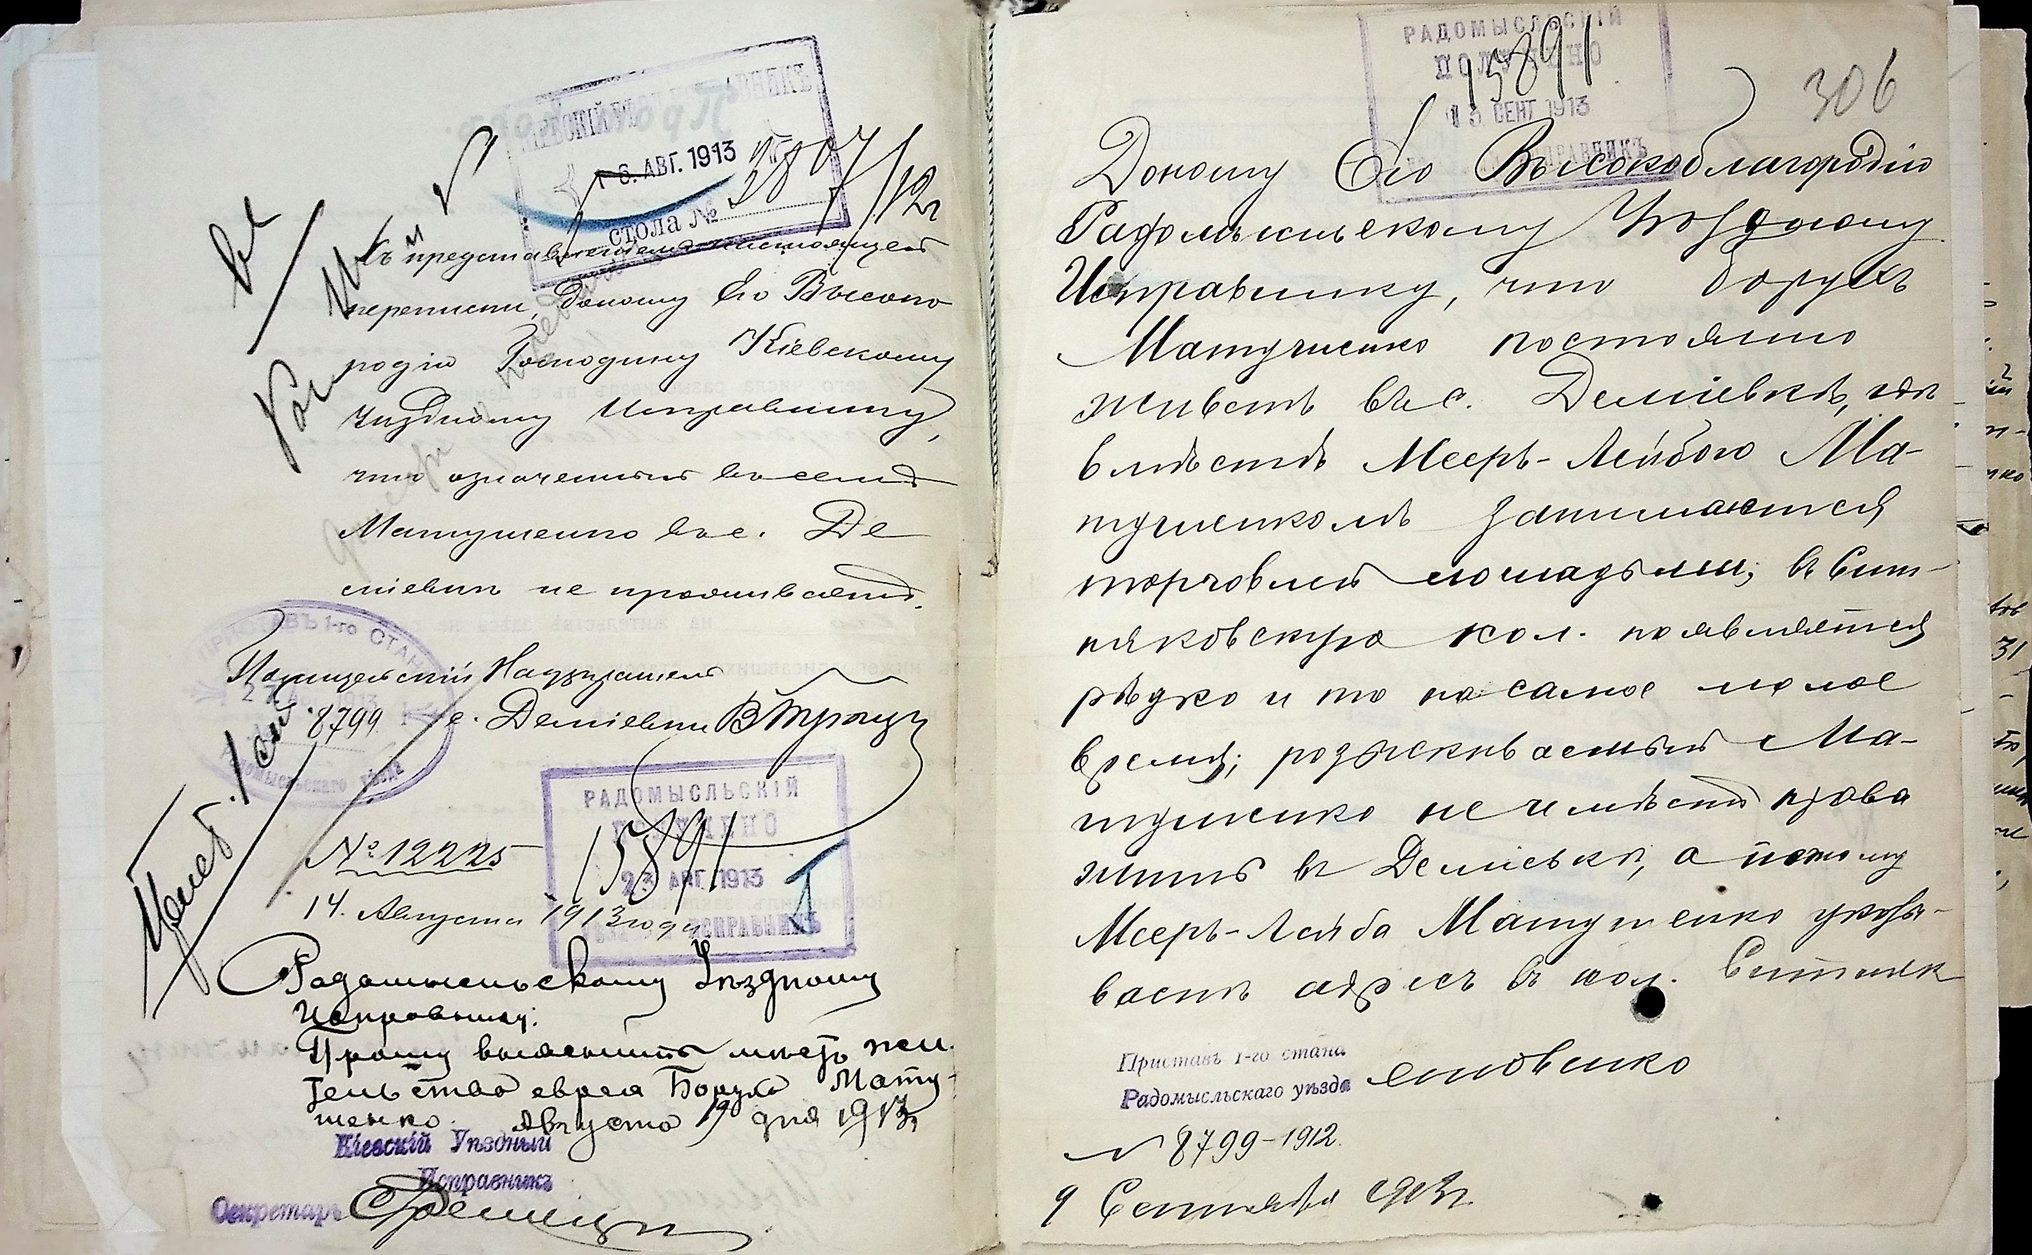 16 АВГ. 1913
стола № 2807/12 г
Съ представленіемъ настоящей
переписки, доношу Его Высоко
родію Господину Кіевскому
Уѣздному Исправнику,
что означенный въ семъ
Матушенко въ с. Де
міевкѣ не проживаетъ.
ПРИСТАВЪ 1-го СТАНА
Полицейскій Надзиратель
8799 с. Деміевки
Радомысльскаго уѣзда
№ 12225
14. Августа 1913 году
РАДОМЫСЛЬСКІЙ
ПОЛУЧЕНО
15891
23 АВГ 1913
ИСПРАВНИКЪ
Радомысльскому Уѣздному
Исправнику.
Прошу выяснить мѣсто жи
тельства еврея Боруха Мату-
шенко. Августа 19 дня 1913 г.
Кіевскій Уѣздный
Исправникъ
Секретарь
306
РАДОМЫСЛЬСКІЙ
ПОЛУЧЕНО
15891
15 СЕНТ 1913
ИСПРАВНИКЪ
Доношу Его Высокоблагородію
Радомысльскому Уѣздному
Исправнику, что Борухъ
Матушенко постоянно
живетъ въ с. Деміевкѣ, гдѣ
вмѣстѣ Мееръ-Лейбою Ма-
тушенкомъ занимается
торговлей лошадьми; въ Сит-
няковскую кол. появляется
рѣдко и то на самое малое
время; розыскиваемый Ма-
тушенко не имѣетъ права
жить въ Деміевкѣ, а потому
Мееръ-Лейба Матушенко указы-
ваетъ адресъ въ кол. Ситняк
Приставъ 1-го стана
Радомысльскаго уѣзда
№ 8799-1912.
9 Сентября 1913 г.